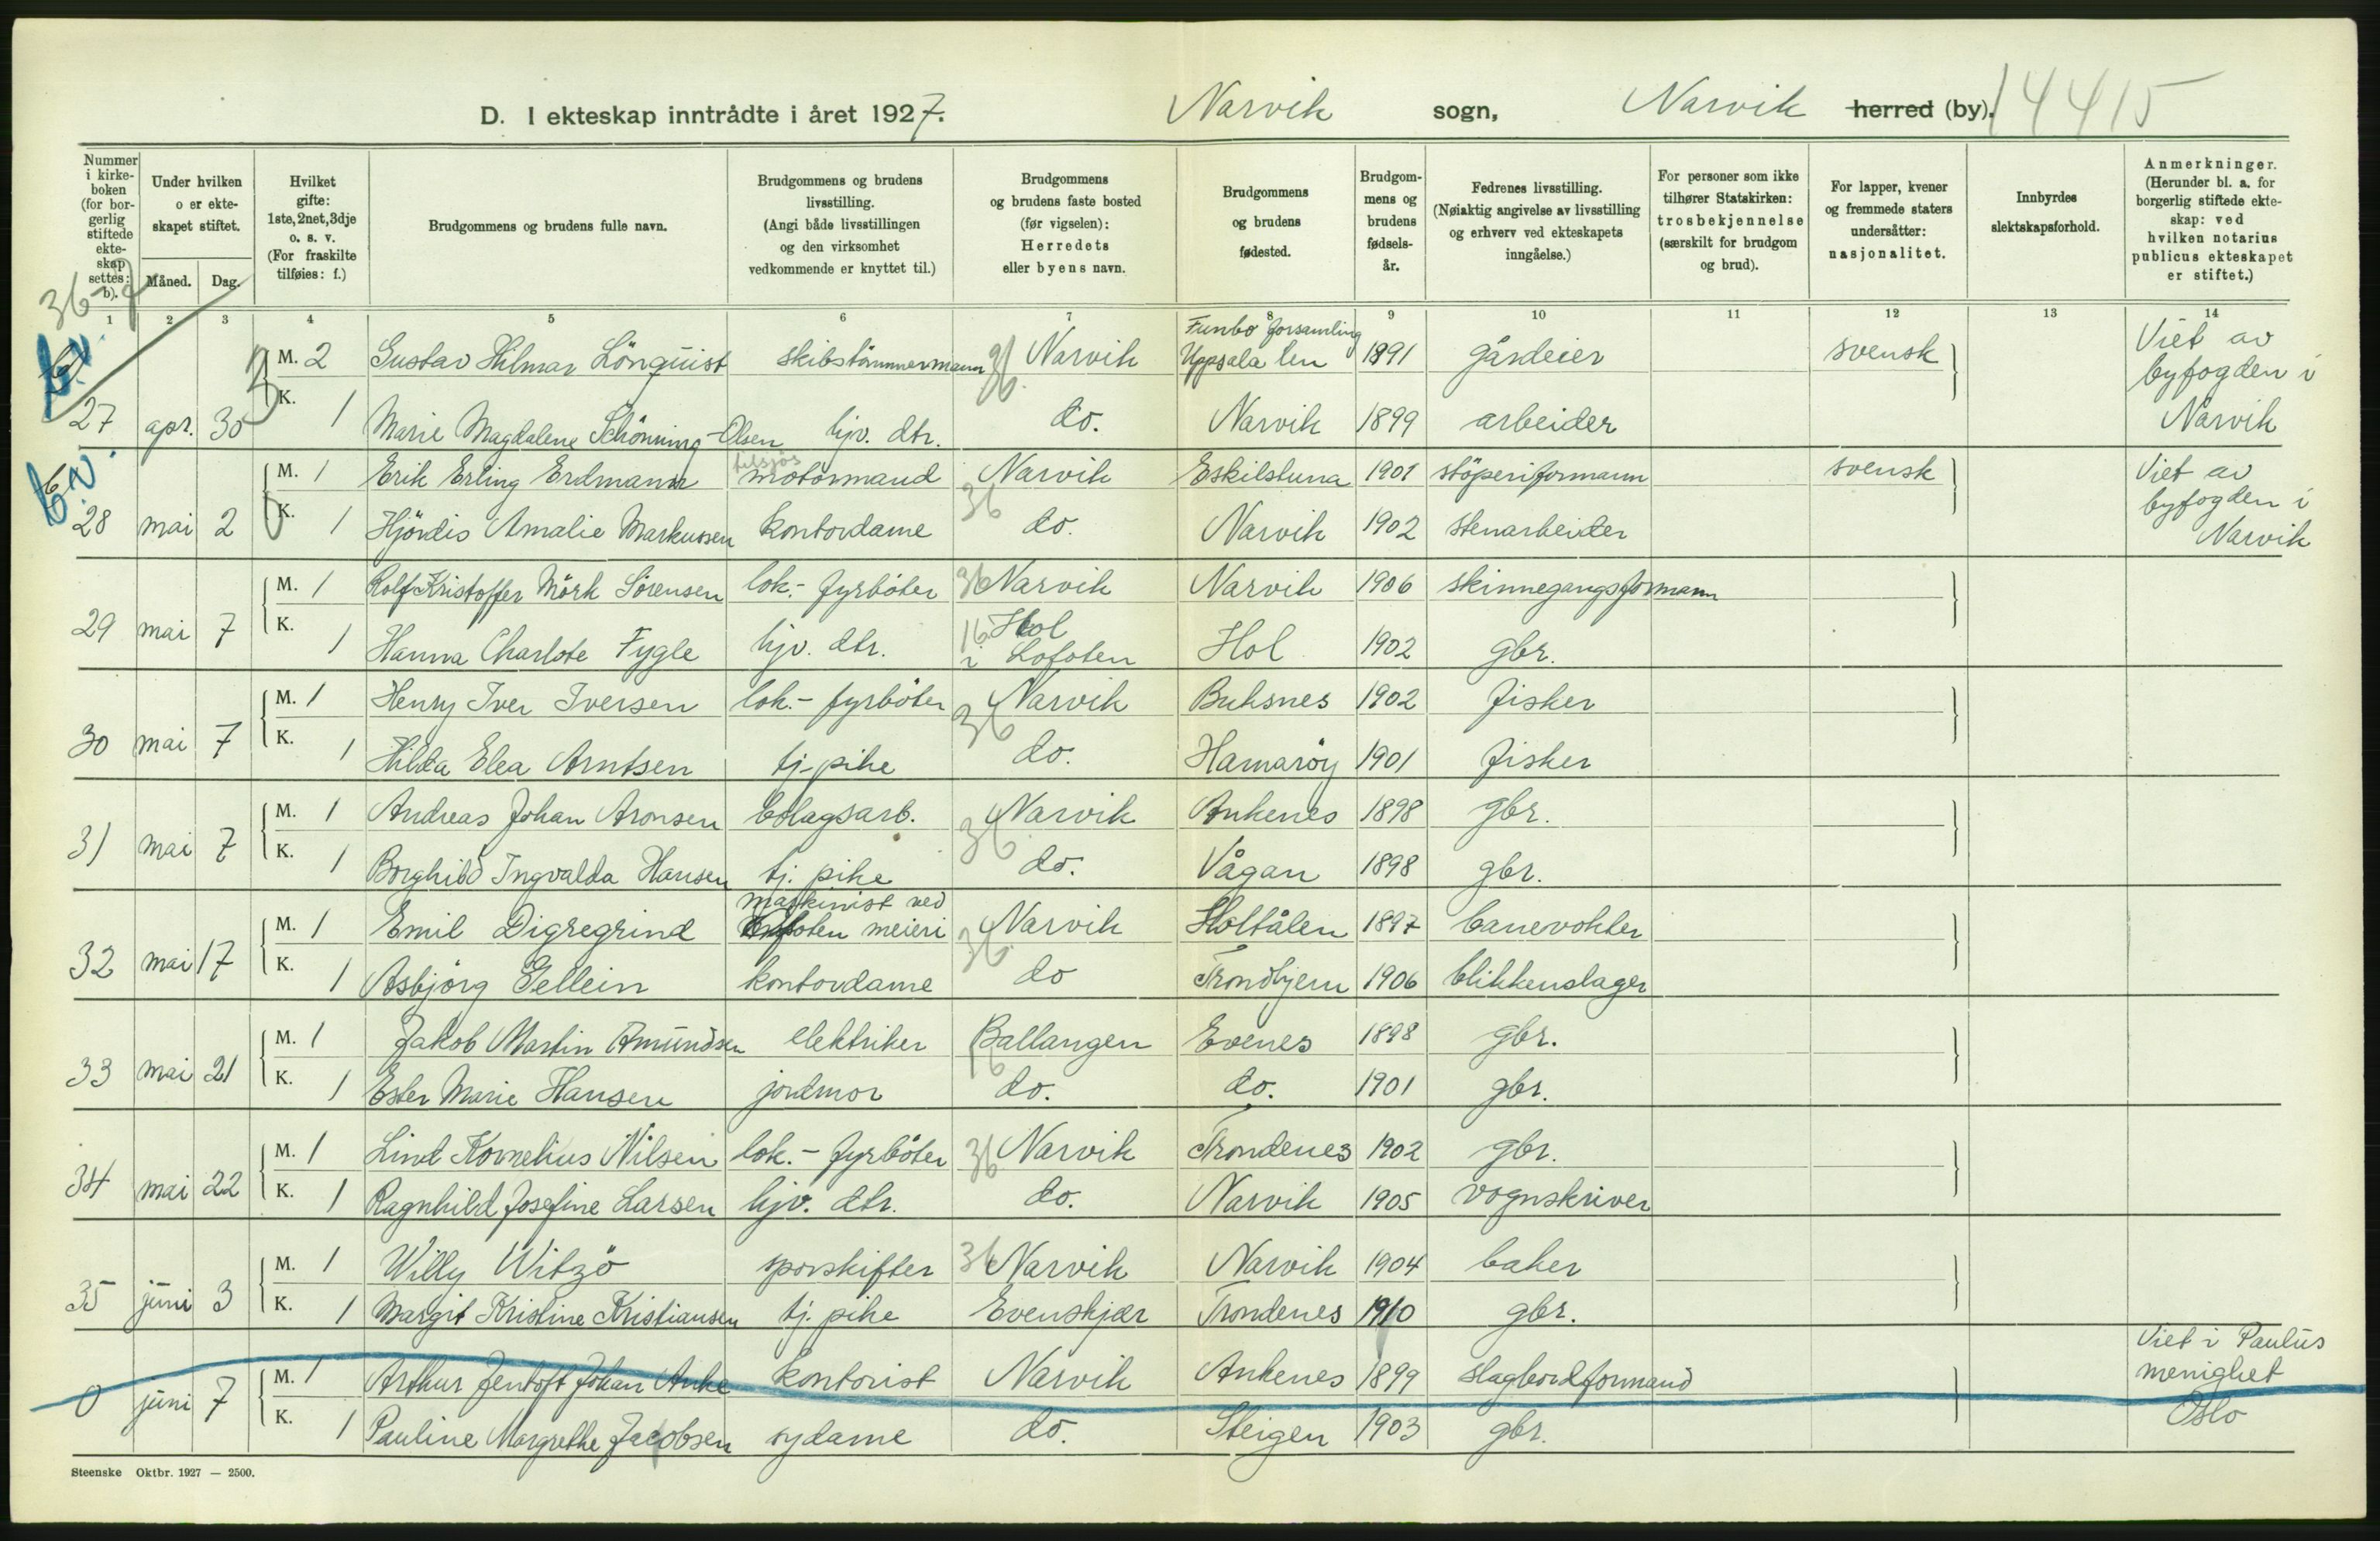 D. I ekteskap inntrådte i året 1927. Narvik sogn, Narvik herred (by). 14415
Nummer i kirkeboken (for borgerlig stiftede ekteskap settes: b).
Under hvilken
o er ekteskapet stiftet.
Måned. Dag.
Hvilket gifte: 1ste, 2net, 3dje o. s. v. (For fraskilte tilføies: f.)
Brudgommens og brudens fulle navn.
Brudgommens og brudens livsstilling. (Angi både livsstillingen og den virksomhet vedkommende er knyttet til.)
Brudgommens og brudens faste bosted (før vigselen): Herredets eller byens navn.
Brudgommens og brudens fødested.
Brudgommens og brudens fødselsår.
Fedrenes livsstilling. (Nøiaktig angivelse av livsstilling og erhverv ved ekteskapets inngåelse.)
For personer som ikke tilhører Statskirken: trosbekjennelse (særskilt for brudgom og brud).
For lapper, kvener og fremmede staters undersåtter: nasjonalitet.
Innbyrdes slektskapsforhold.
Anmerkninger. (Herunder bl. a. for borgerlig stiftede ekteskap: ved hvilken notarius publicus ekteskapet er stiftet.)
1 2 3 4 5 6 7 8 9 10 11 12 13 14
M. 2 Gustav Hilmar Lönquist skibstømmermann 36 Narvik Funbo forsamling Uppsala len 1891 gårdeier svensk Viet av byfogden i Narvik
27 apr. 30 K. 1 Marie Magdalene Schönning-Olsen hjv. dtr. do. Narvik 1899 arbeider
M. 1 Erik Erling Erdmann motormand Narvik Eskilstuna 1901 støperiformann svensk Viet av byfogden i Narvik
28 mai 2 K. 1 Hjördis Amalie Markussen kontordame 36 do. Narvik 1902 stenarbeider
M. 1 Rolf Kristoffer Mörk Sörensen lok.-fyrböter 36 Narvik Narvik 1906 skinnegangsformann
29 mai 7 K. 1 Hanna Charlote Fygle hjv. dtr. 16 Hol i Lofoten Hol 1902 gbr.
M. 1 Henry Iver Iversen lok.-fyrböter Narvik Buksnes 1902 fisker
30 mai 7 K. 1 Hilda Elea Arntsen tj-pike 36 do. Hamaröy 1901 fisker
M. 1 Andreas Johan Aronsen bolagsarb. Narvik Ankenes 1898 gbr.
31 mai 7 K. 1 Borghild Ingvalda Hansen tj. pike 36 do. Vågan 1898 gbr.
M. 1 Emil Digregrind maskinist ved Ofoten meieri Narvik Holtålen 1897 banevokter
32 mai 17 K. 1 Asbjörg Gellein kontordame 36 do Trondhjem 1906 blikkenslager
M. 1 Jakob Martin Amundsen elektriker Ballangen Evenes 1898 gbr.
33 mai 21 K. 1 Ester Marie Hansen jordmor 16 do. do. 1901 gbr.
M. 1 Lind Kornelius Nilsen lok.-fyrböter 36 Narvik Trondenes 1902 gbr.
34 mai 22 K. 1 Ragnhild Josefine Larsen hjv. dtr. do. Narvik 1905 vognskriver
M. 1 Willy Witzö sporskifter 36 Narvik Narvik 1904 baker
35 juni 3 K. 1 Margit Kristine Kristiansen tj. pike Evenskjær Trondenes 1910 gbr.
M. 1 Arthur Jentoft Johan Anke kontorist Narvik Ankenes 1899 slagbordformand Viet i Paulus menighet Oslo
0 juni 7 K. 1 Pauline Margrethe Jacobsen sydame do. Steigen 1903 gbr.
Steenske Oktbr. 1927 — 2500.